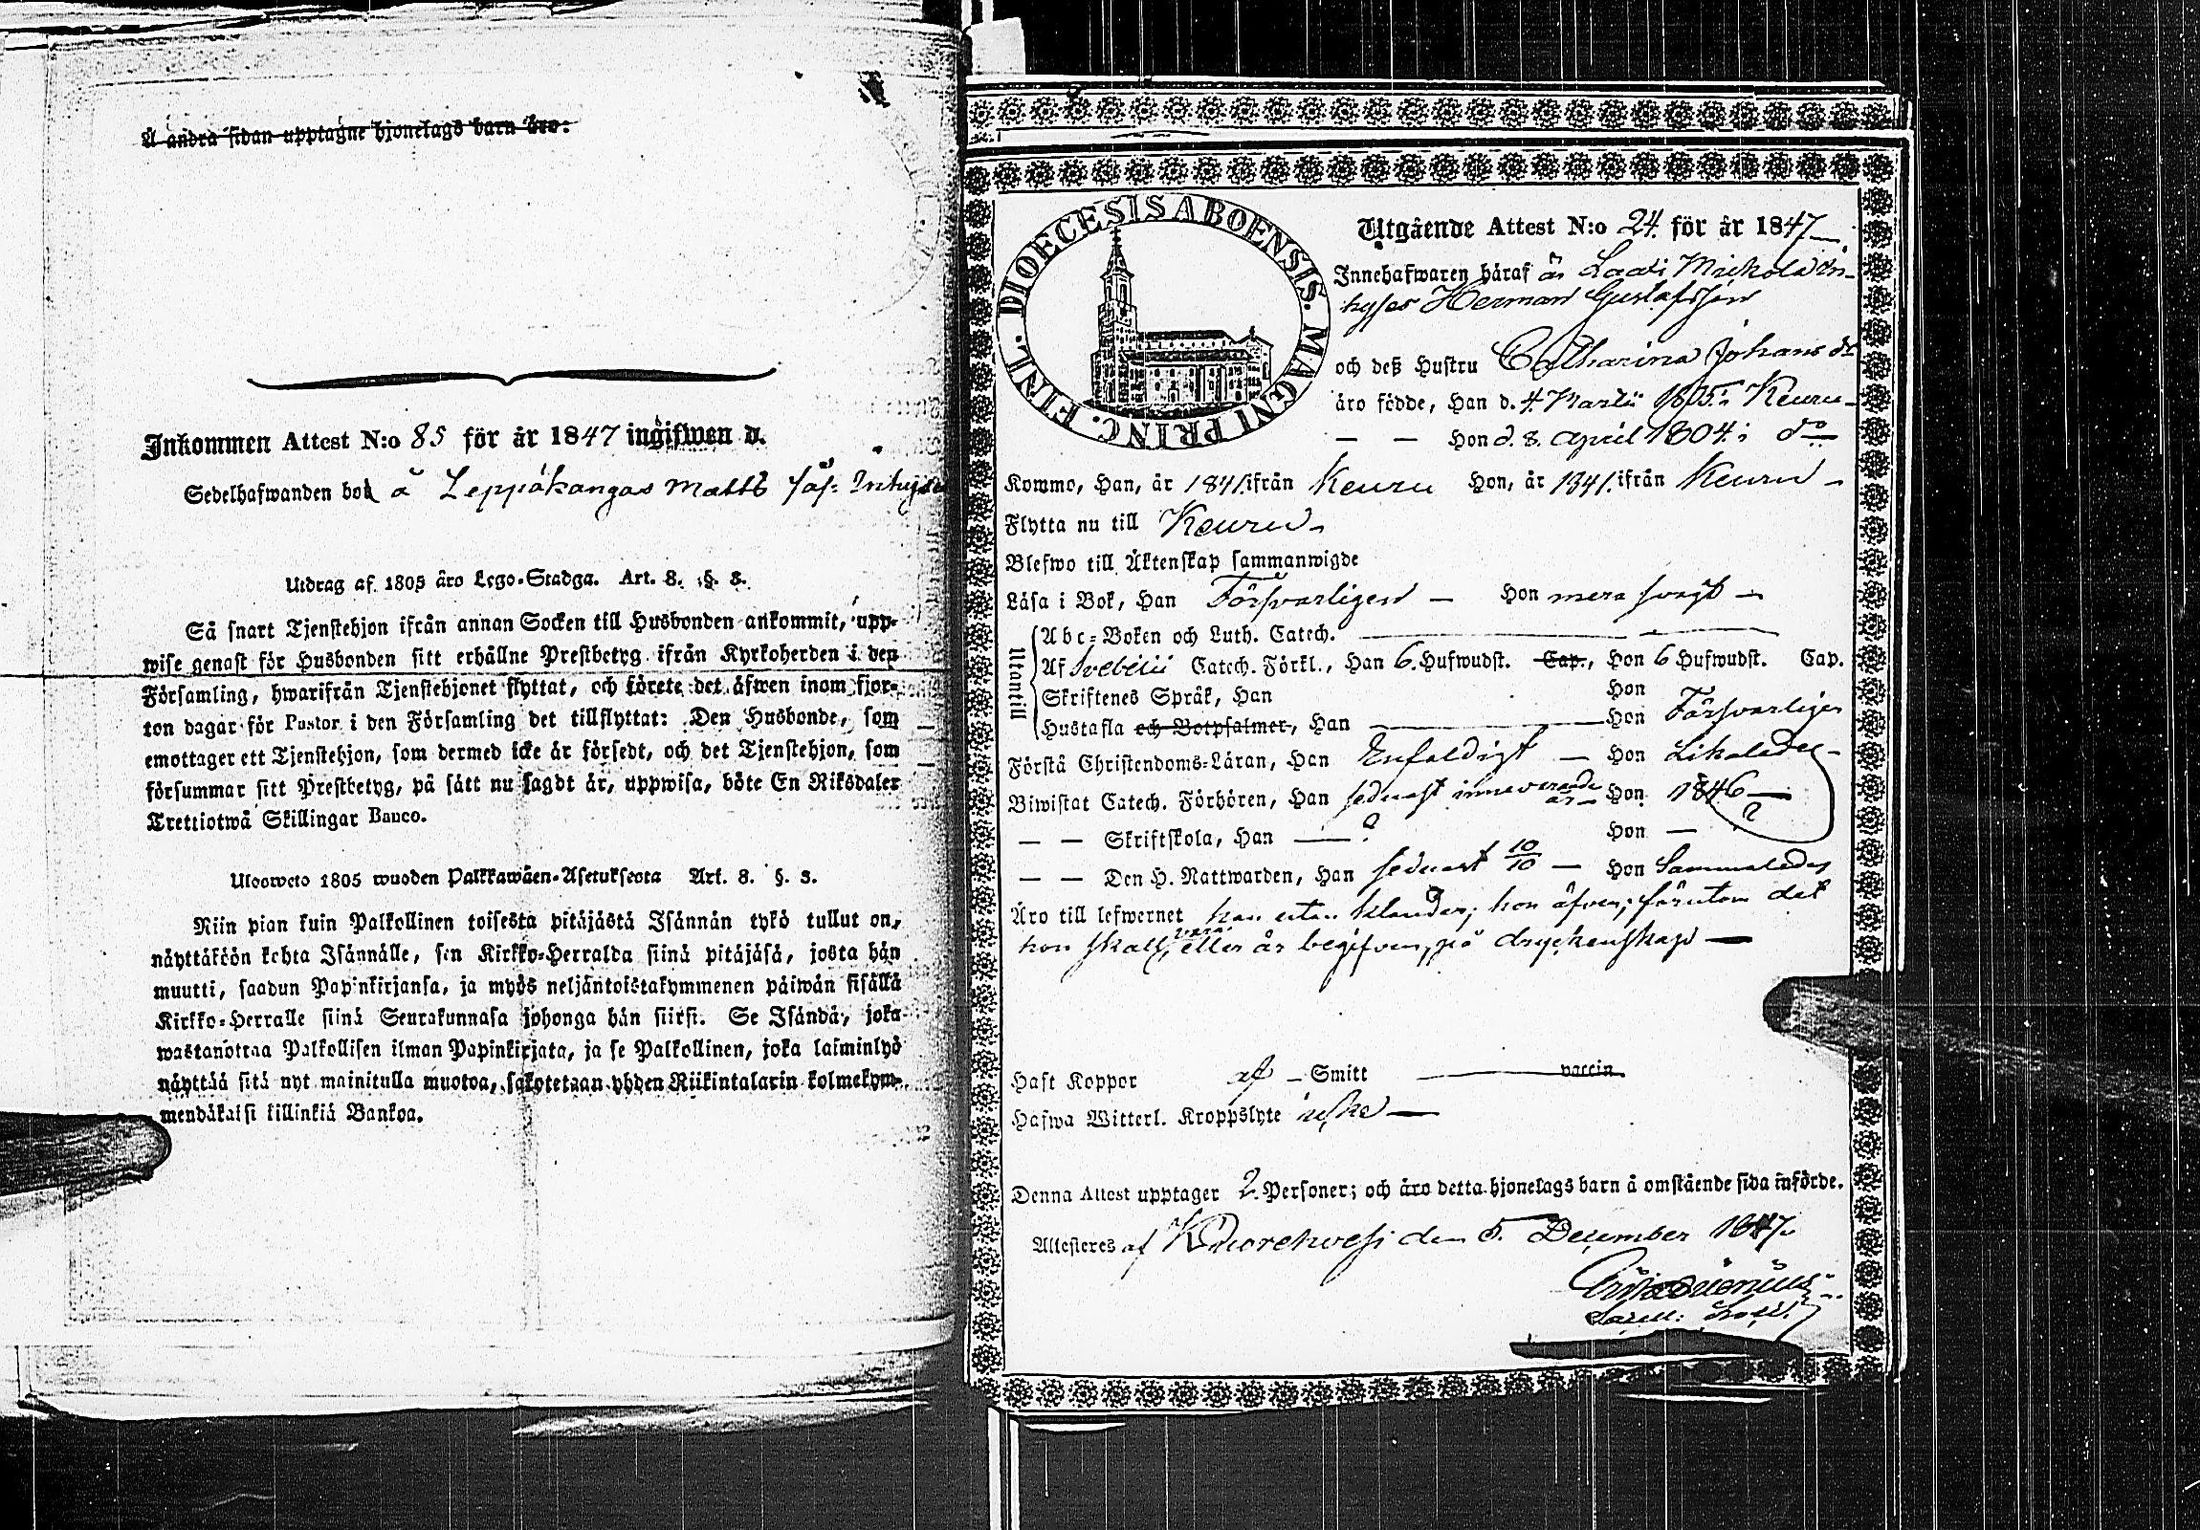 Å andra sidan upptagne hjonelags barn äro:
Inkommen Attest N:o 85 för år 1847 ingifwen d.
Sedelhafwanden bor å Leppäkangas Matts
Utdrag af 1805 åro Lego-Stadga. Art. 8. §. 3.
Så snart Tjenstehjon ifrån annan Socken till Husbonden ankommit, upp-
wise genast för Husbonden sitt erhållne Prestbetyg ifrån Kyrkoherden i den
Församling, hwarifrån Tjenstehjonet flyttat, och förete det åfwen inom fjor-
ton dagar för Pastor i den Församling det tillflyttat: Den Husbonde, som
emottager ett Tjenstehjon, som dermed icke är försedt, och det Tjenstehjon, som
försummar sitt Prestbetyg, på sätt nu sagdt är, uppwisa, böte En Riksdaler
Trettiotwå Skillingar Banco.
Ulosweto 1805 wuoden Palkkawäen-Asetuksesta Art. 8. §. 3.
Niin pian kuin Palkollinen toisesta pitäjästä Isännän tykö tullut on,
näyttäköön kohta Isännälle, sen Kirkko-Herralda siinä pitäjäsä, josta hän
muutti, saadun Papinkirjansa, ja myös neljäntoistakymmenen päiwän sisällä
Kirkko-Herralle siinä Seurakunnasa johonga hän siirsi. Se Isändä, joka
wastanottaa Palkollisen ilman Papinkirjata, ja se Palkollinen, joka laiminlyö
näyttää sitä nyt mainitulla muotoa, sakotetaan yhden Riikintalarin kolmekym-
mendäkaksi killinkiä Bankoa.
DIOECESIS ABOENSIS. MAGNI PRINC. FINL.
Utgående Attest N:o 24. för år 1847.
Innehafwaren håraf är Laasi Mickola in-
hyses Herman Gustafsson
och deß Hustru Catharina Johans dr
äro födde, Han d. 4 Martii 1805 i Keuru
— — Hon d. 8. april 1804 i do
Kommo, Han, år 1841. ifrån Keuru Hon, år 1841. ifrån Keuru
Flytta nu till Keuru
Blefwo till Äktenskap sammanwigde
Läsa i Bok, Han Försvarligen — Hon mera svagt —
Utantill
Abc-Boken och Luth. Catech.
Af Svebilii Catech. Förkl., Han 6. Hufwudst. Cap., Hon 6 Hufwudst. Cap.
Skriftenes Språk, Han Hon
Hustafla och Botpsalmer, Han — Hon Försvarligen
Förstå Christendoms-Läran, Han Enfaldigt — Hon Likaledes
Biwistat Catech. Förhören, Han sednast innevarande år — Hon 1846 —
— — Skriftskola, Han — ? Hon — ?
— — Den H. Nattwarden, Han sednast 10/10 — Hon Sammaledes
Äro till lefwernet han utan klander; hon äfven; förutom det
hon skall vara eller är begifven på dryckenskap —
Haft Koppor af — Smitt — vaccin.
Hafwa Witterl. Kroppslyte icke —
Denna Attest upptager 2. Personer; och äro detta hjonelags barn å omstående sida införde.
Attesteres af Kuorehvesi den 5. December 1847.